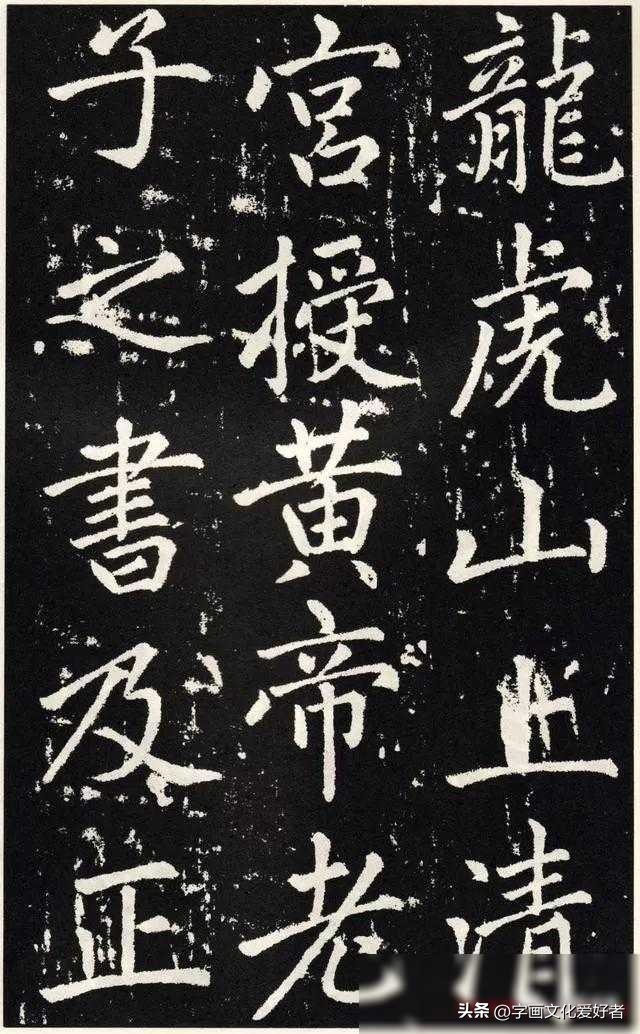 龍虎山上清
宮授黃帝老
子之書及正
头条 @字画文化爱好者